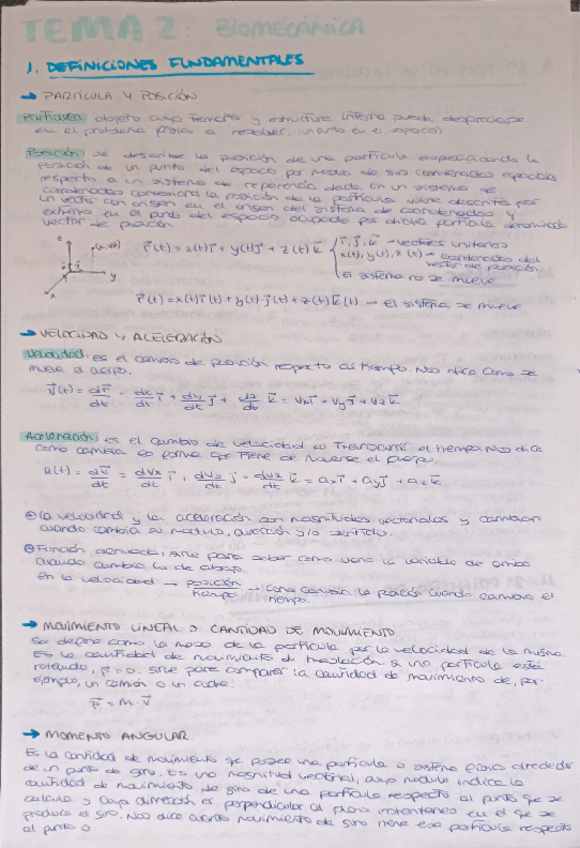 TEMA 2: BIOMECÁNICA
1. DEFINICIONES FUNDAMENTALES
→ PARTÍCULA Y POSICIÓN
Partícula: objeto cuyo tamaño y estructura interna puede despreciarse
en el problema físico a resolver. (un punto en el espacio)
Posición: se describe la posición de una partícula especificando la
posición de un punto del espacio por medio de sus coordenadas espaciales
respecto a un sistema de referencia dado, en un sistema de
coordenadas cartesiana la posición de la partícula viene descrita por
un vector con origen en el origen del sistema de coordenadas y
extremo en el punto del espacio ocupado por dicha partícula denominado
vector de posición.
z
y
x
r⃗(t) = x(t)i⃗ + y(t)j⃗ + z(t)k⃗ { i⃗, j⃗, k⃗ → vectores unitarios
x(t), y(t), z(t) → coordenadas del
vector de posición
El sistema no se mueve
r⃗(t) = x(t)i⃗(t) + y(t)j⃗(t) + z(t)k⃗(t) → El sistema se mueve
→ VELOCIDAD Y ACELERACIÓN
Velocidad: es el cambio de posición respecto al tiempo. Nos dice como se
mueve el cuerpo.
v⃗(t) = dr⃗/dt = dx/dt i⃗ + dy/dt j⃗ + dz/dt k⃗ = vxi⃗ + vyj⃗ + vzk⃗
Aceleración: es el cambio de velocidad al transcurrir el tiempo. Nos dice
como cambia la forma que tiene de moverse el cuerpo.
a(t) = dv⃗/dt = dvx/dt i⃗ + dvy/dt j⃗ + dvz/dt k⃗ = axi⃗ + ayj⃗ + azk⃗
La velocidad y la aceleración son magnitudes vectoriales y cambian
cuando cambia su módulo, dirección y/o sentido.
Función derivada: sirve para saber como varía la variable de arriba
cuando cambia la de abajo.
En la velocidad → posición/tiempo → Como cambia la posición cuando cambia el
tiempo.
→ MOVIMIENTO LINEAL O CANTIDAD DE MOVIMIENTO
Se define como la masa de la partícula por la velocidad de la misma.
Es la cantidad de movimiento de traslación. Si una partícula está
rotando, p⃗ = 0. sirve para comparar la cantidad de movimiento de, por
ejemplo, un camión o un coche.
p⃗ = m · v⃗
→ MOMENTO ANGULAR
Es la cantidad de movimiento que posee una partícula o sistema físico alrededor
de un punto de giro. Es una magnitud vectorial, cuyo módulo indica la
cantidad de movimiento de giro de una partícula respecto al punto que se
calcula y cuya dirección es perpendicular al plano instantáneo en el que se
produce el giro. Nos dice cuánto movimiento de giro tiene esa partícula respecto
al punto o